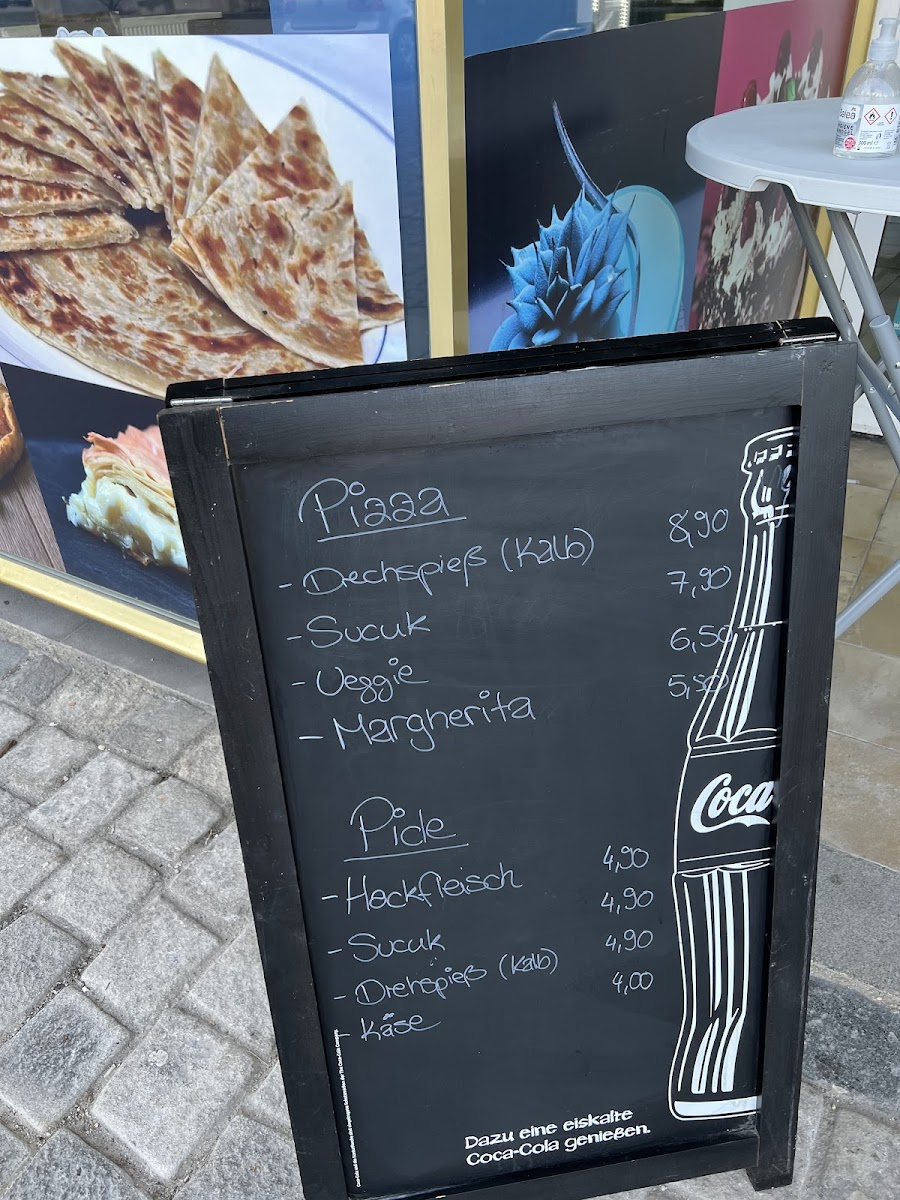 Balea
HYGIENE
Pizza
- Drechspieß (Kalb) 8,90
- Sucuk 7,90
- Veggie 6,50
- Margherita 5,50
Pide
- Hackfleisch 4,90
- Sucuk 4,90
- Drehspieß (Kalb) 4,90
- Käse 4,00
Coca
Dazu eine eiskalte
Coca-Cola genießen.